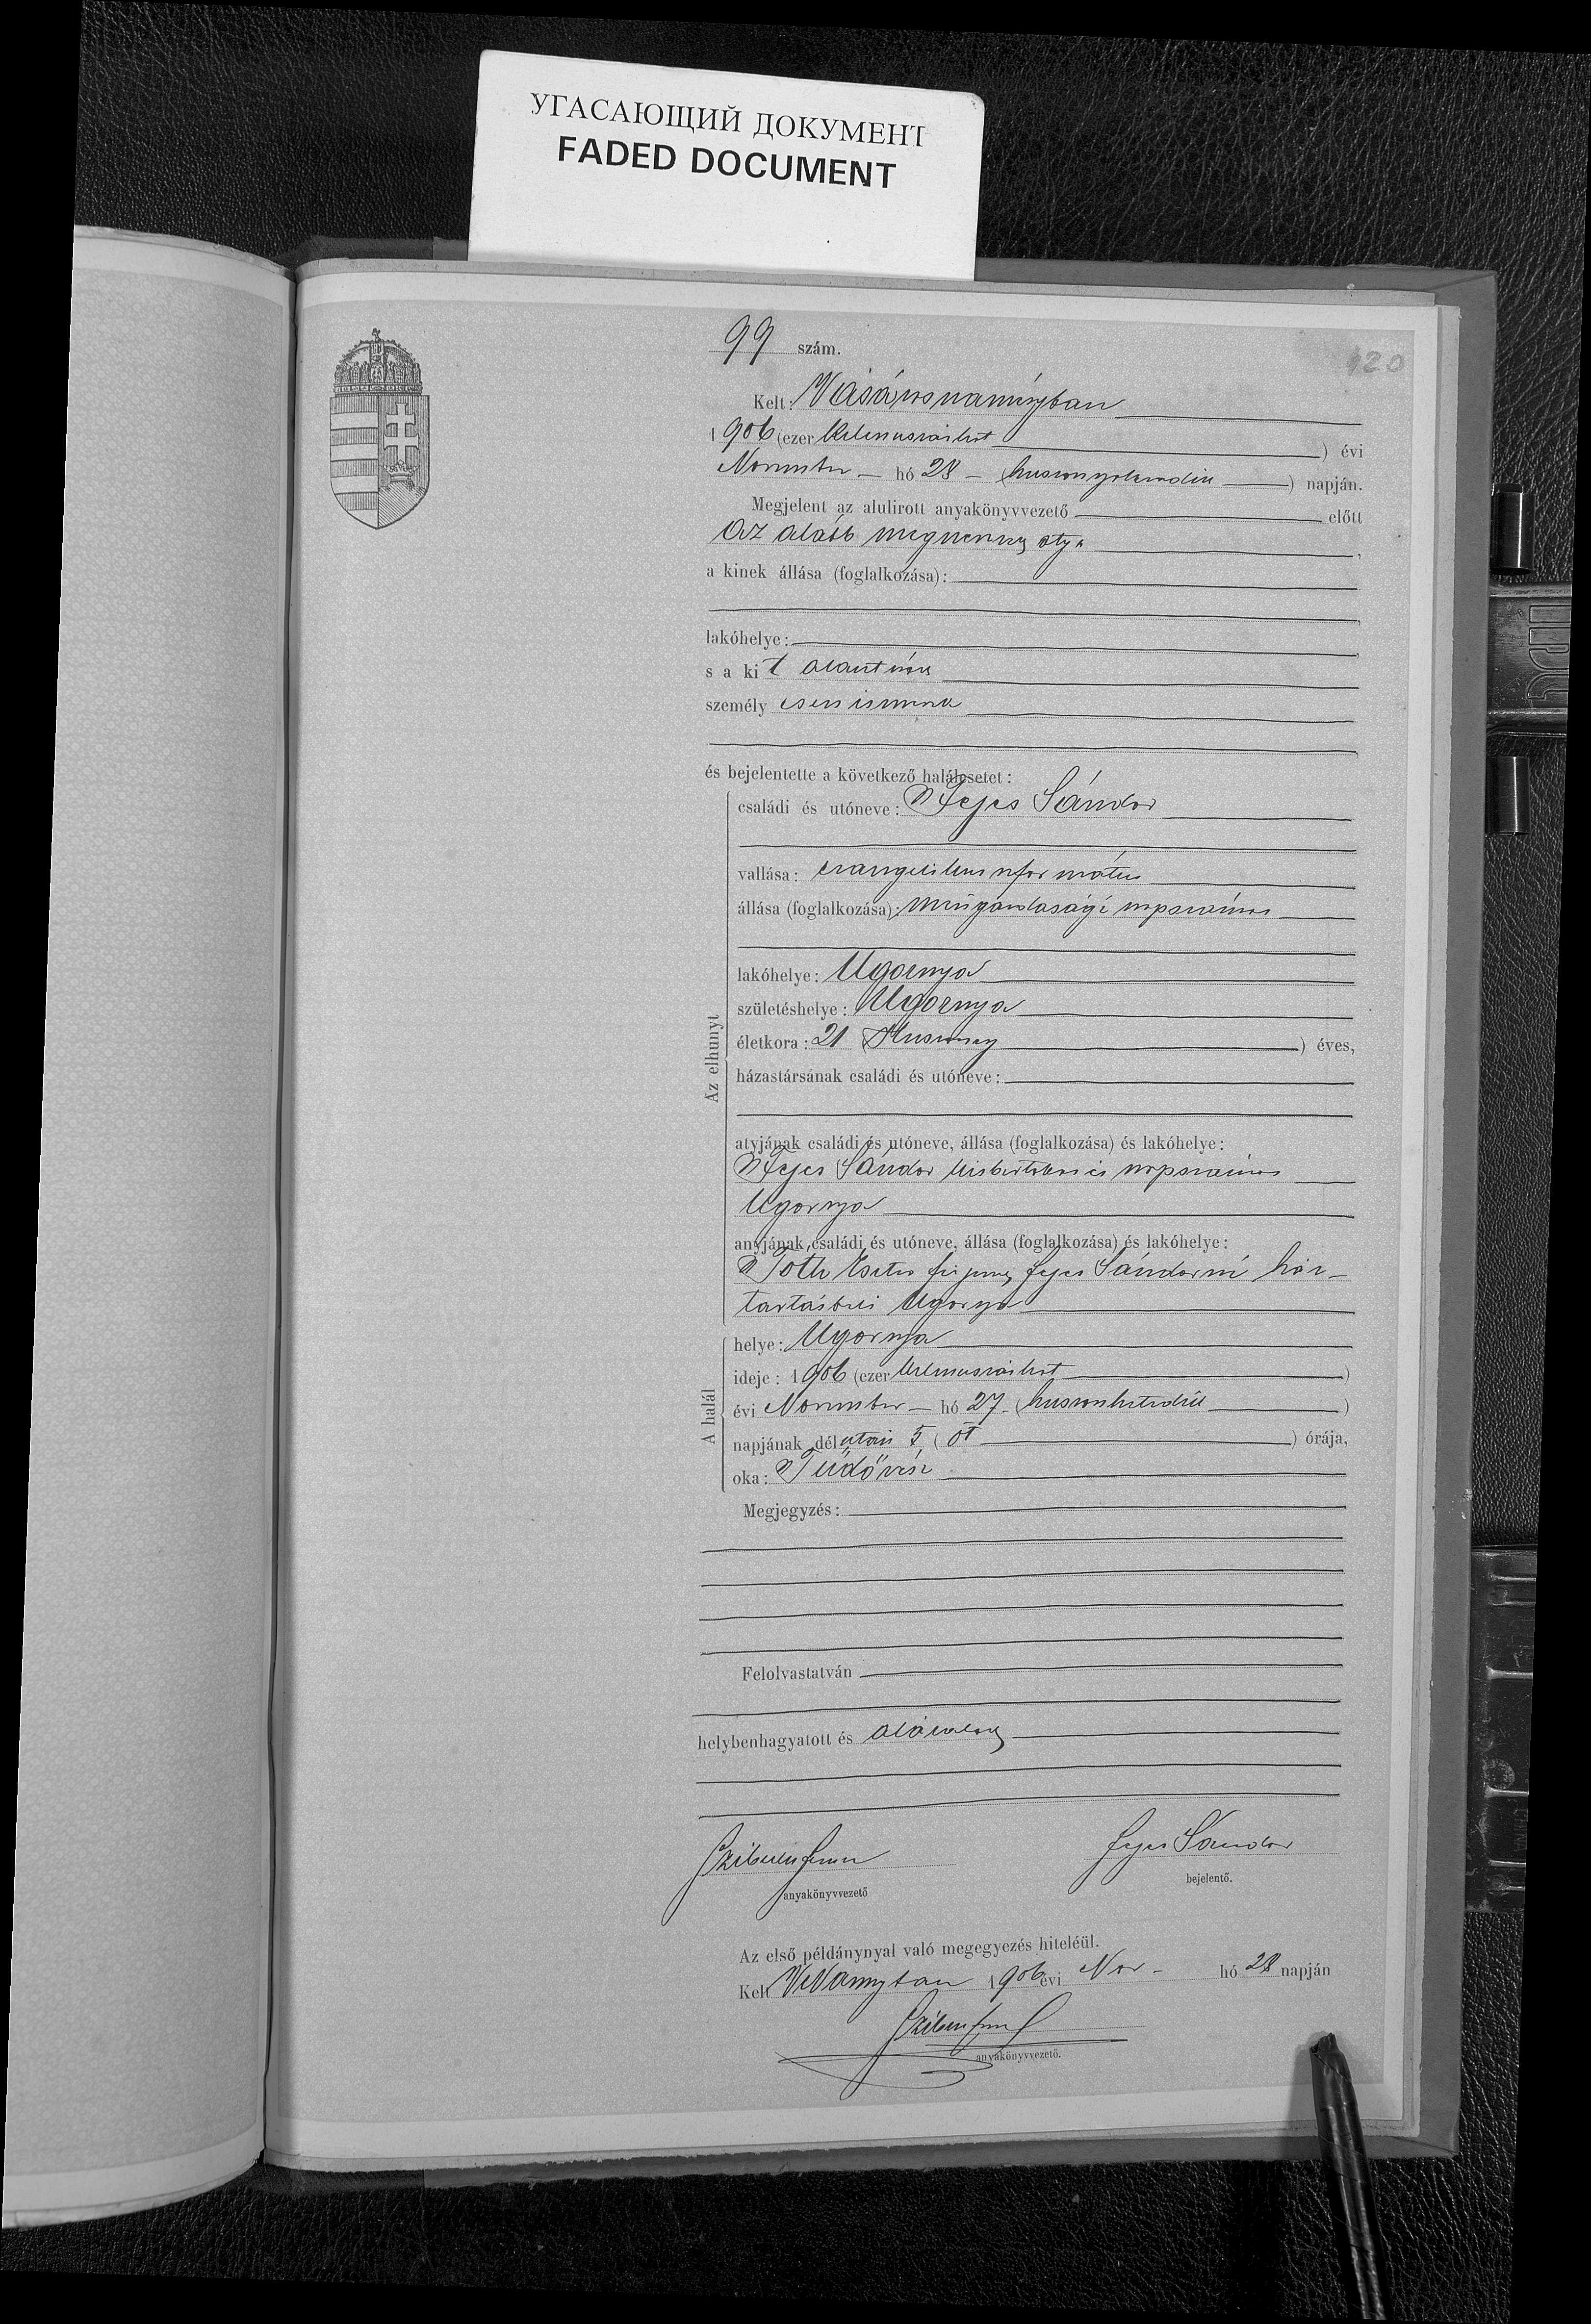 УГАСАЮЩИЙ ДОКУМЕНТ
FADED DOCUMENT
120
99 szám.
Kelt: Vásárosnaményban
1906 (ezer kilenczszázhat) évi
November hó 28 (huszonnyolczadik) napján.
Megjelent az alulirott anyakönyvvezető előtt
az alább megnevezett atya,
a kinek állása (foglalkozása):
lakóhelye:
s a kit alantirott
személy esen ismert
és bejelentette a következő halálesetet:
Az elhunyt
családi és utóneve: Fejes Sándor
vallása: evangelikus református
állása (foglalkozása): mezőgazdasági napszámos
lakóhelye: Ugornya
születéshelye: Ugornya
életkora: 21 (Huszonegy) éves,
házastársának családi és utóneve:
atyjának családi és utóneve, állása (foglalkozása) és lakóhelye:
Fejes Sándor kisbirtokos és napszámos
Ugornya
anyjának családi és utóneve, állása (foglalkozása) és lakóhelye:
Tóth Eszter férjezett Fejes Sándorné ház-
tartásbeli Ugornya
A halál
helye: Ugornya
ideje: 1906 (ezer kilenczszázhat)
évi November hó 27. (huszonhetedik)
napjának délután 5 (öt) órája,
oka: Tüdővész
Megjegyzés:
Felolvastatván
helybenhagyatott és aláiratott
anyakönyvvezető
Fejes Sándor
bejelentő.
Az első példánynyal való megegyezés hiteléül.
Kelt VNaményban 1906 évi Nov- hó 28 napján
anyakönyvvezető.